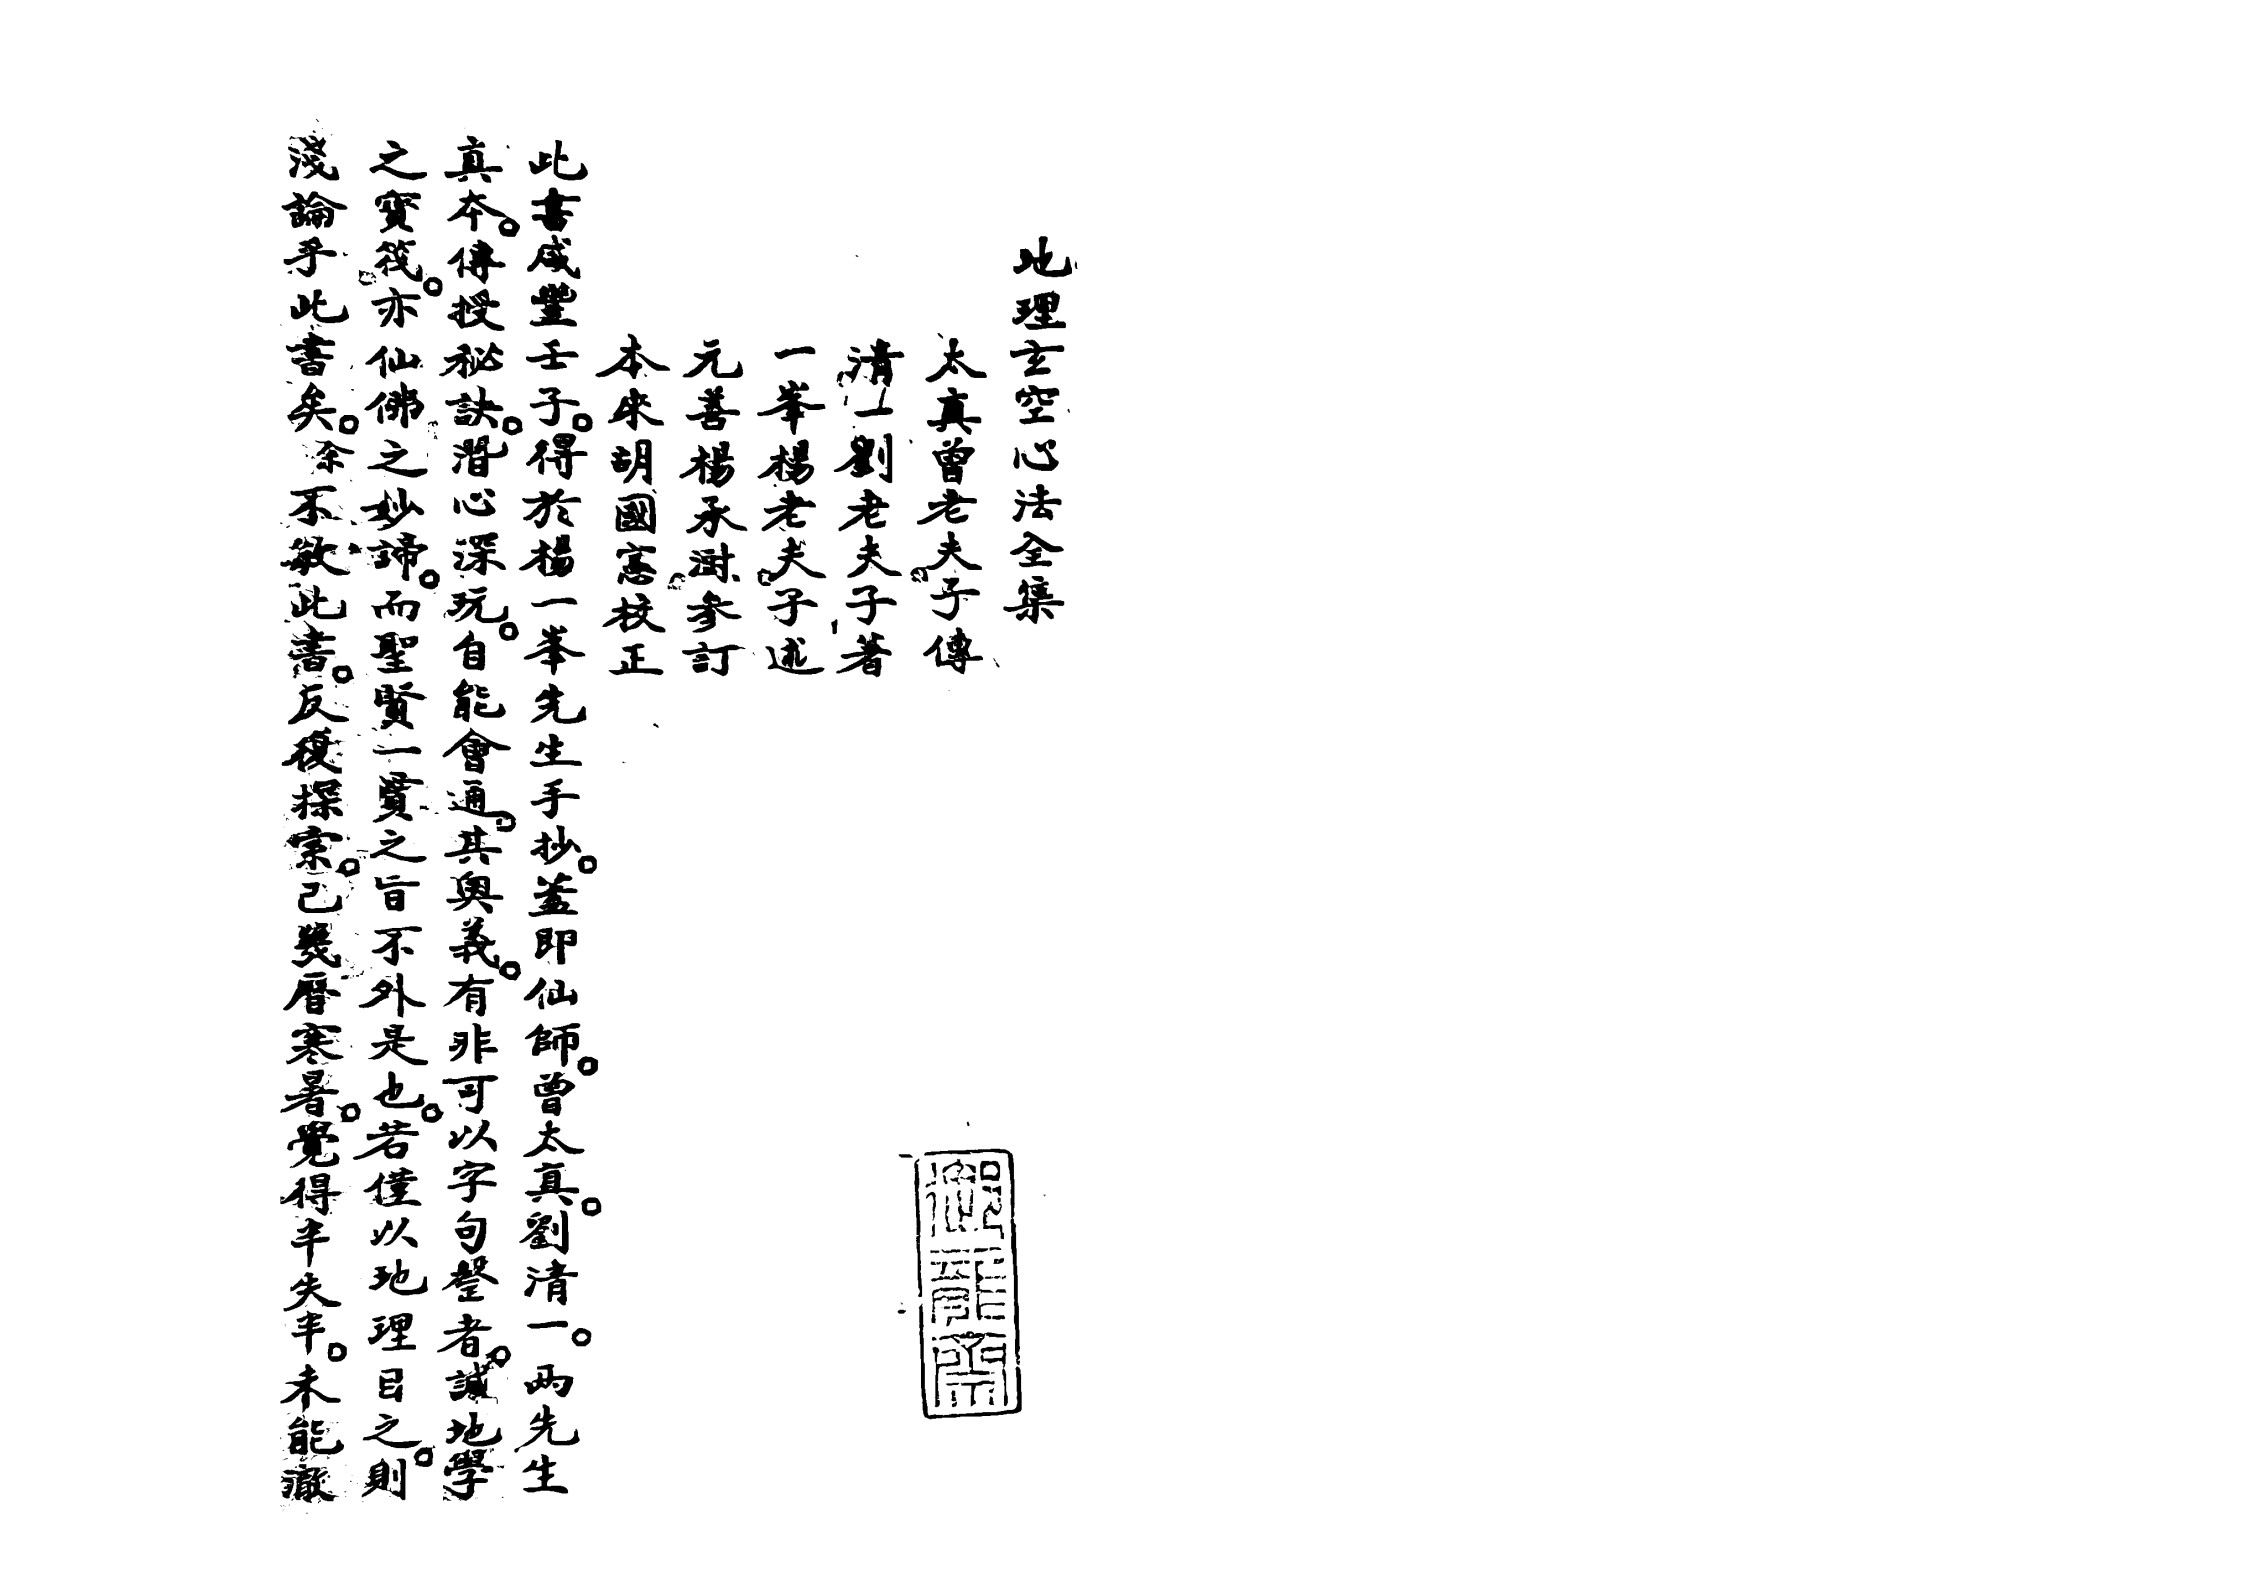 地理玄空心法全集
太真曾老夫子傳
清一劉老夫子著
一峯楊老夫子述
元善楊承澍參訂
本來胡國憲校正
此書咸豐壬子。得於楊一峯先生手抄。蓋即仙師。曾太真。劉清一。兩先生
真本。傳授秘訣。潛心深玩。自能會通。其奧義。有非可以字句罄者。誠地學
之寶筏。亦仙佛之妙諦。而聖賢一貫之旨不外是也。若僅以地理目之。則
淺論乎此書矣。余不敏此書。反復探索。已幾曆寒暑。覺得半失半。未能澈